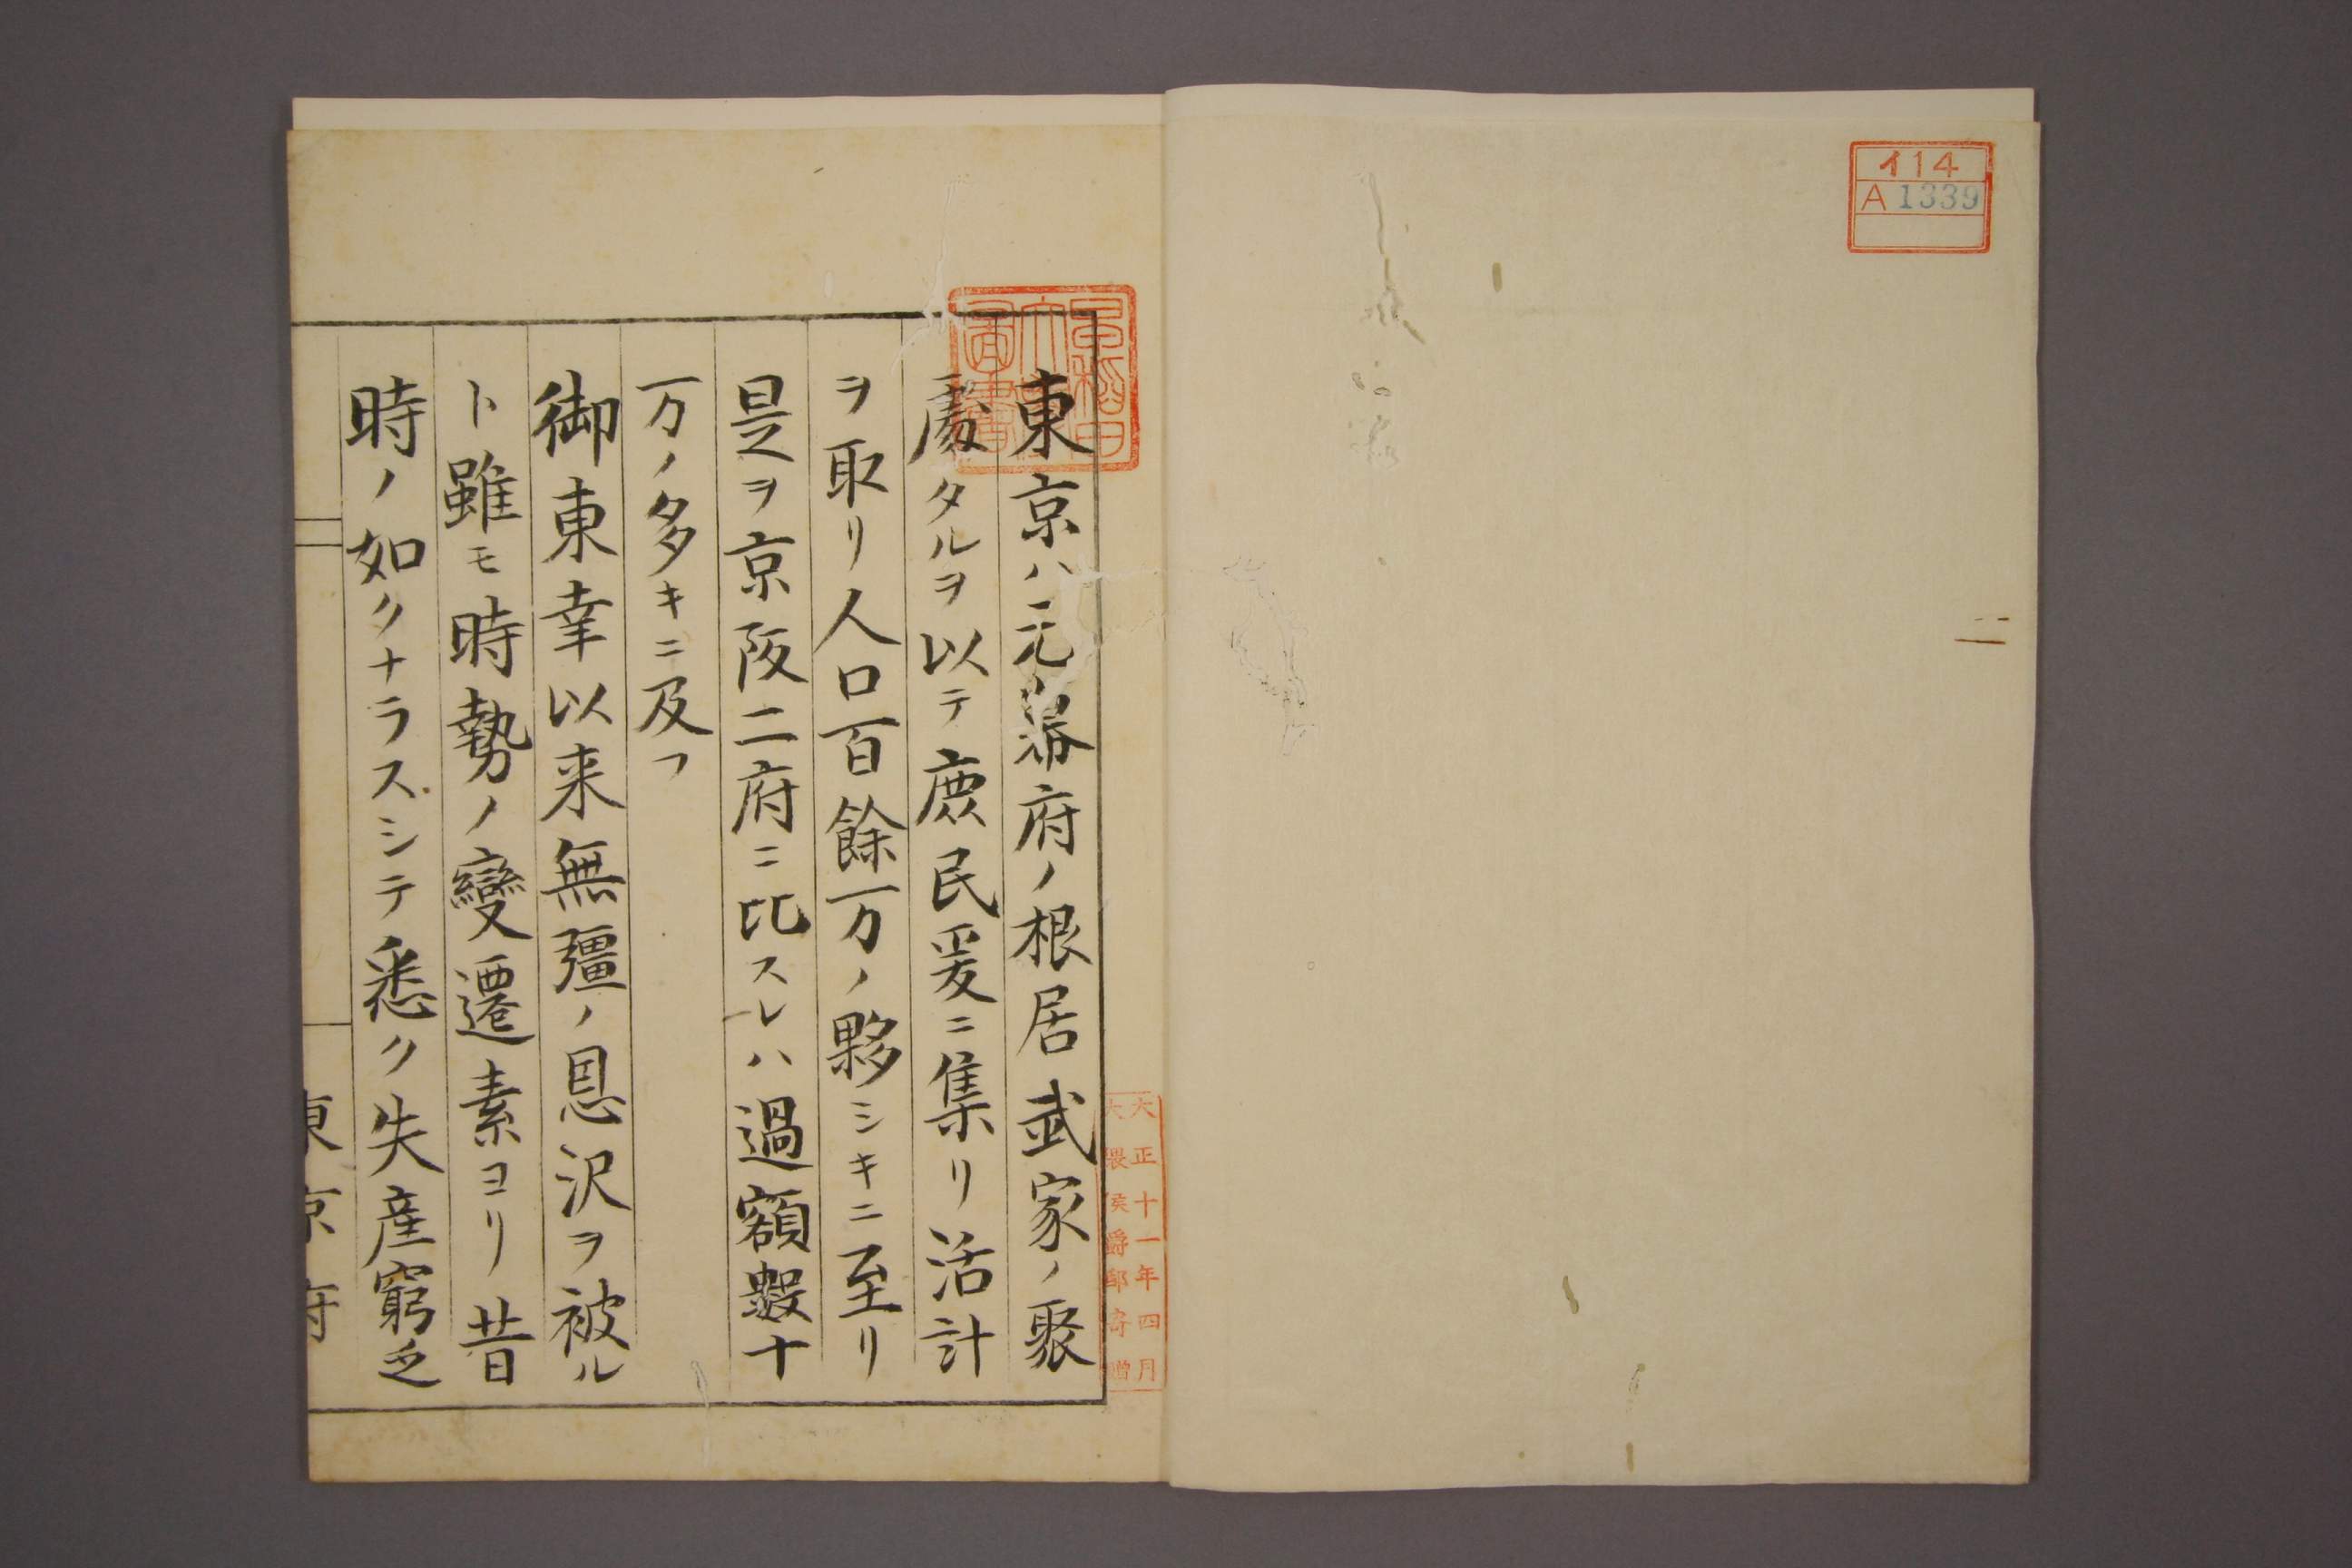 イ14
A 1339
早稲田
大學
圖書
大正十一年四月
大隈侯爵邸寄贈
東京ハ元幕府ノ根居武家ノ聚
處タルヲ以テ庶民爰ニ集リ活計
ヲ取リ人口百餘万ノ夥シキニ至リ
是ヲ京阪二府ニ比スレハ過額數十
万ノ多キニ及フ
御東幸以来無彊ノ恩沢ヲ被ル
ト雖モ時勢ノ變遷素ヨリ昔
時ノ如クナラスシテ悉ク失産窮乏
東京府